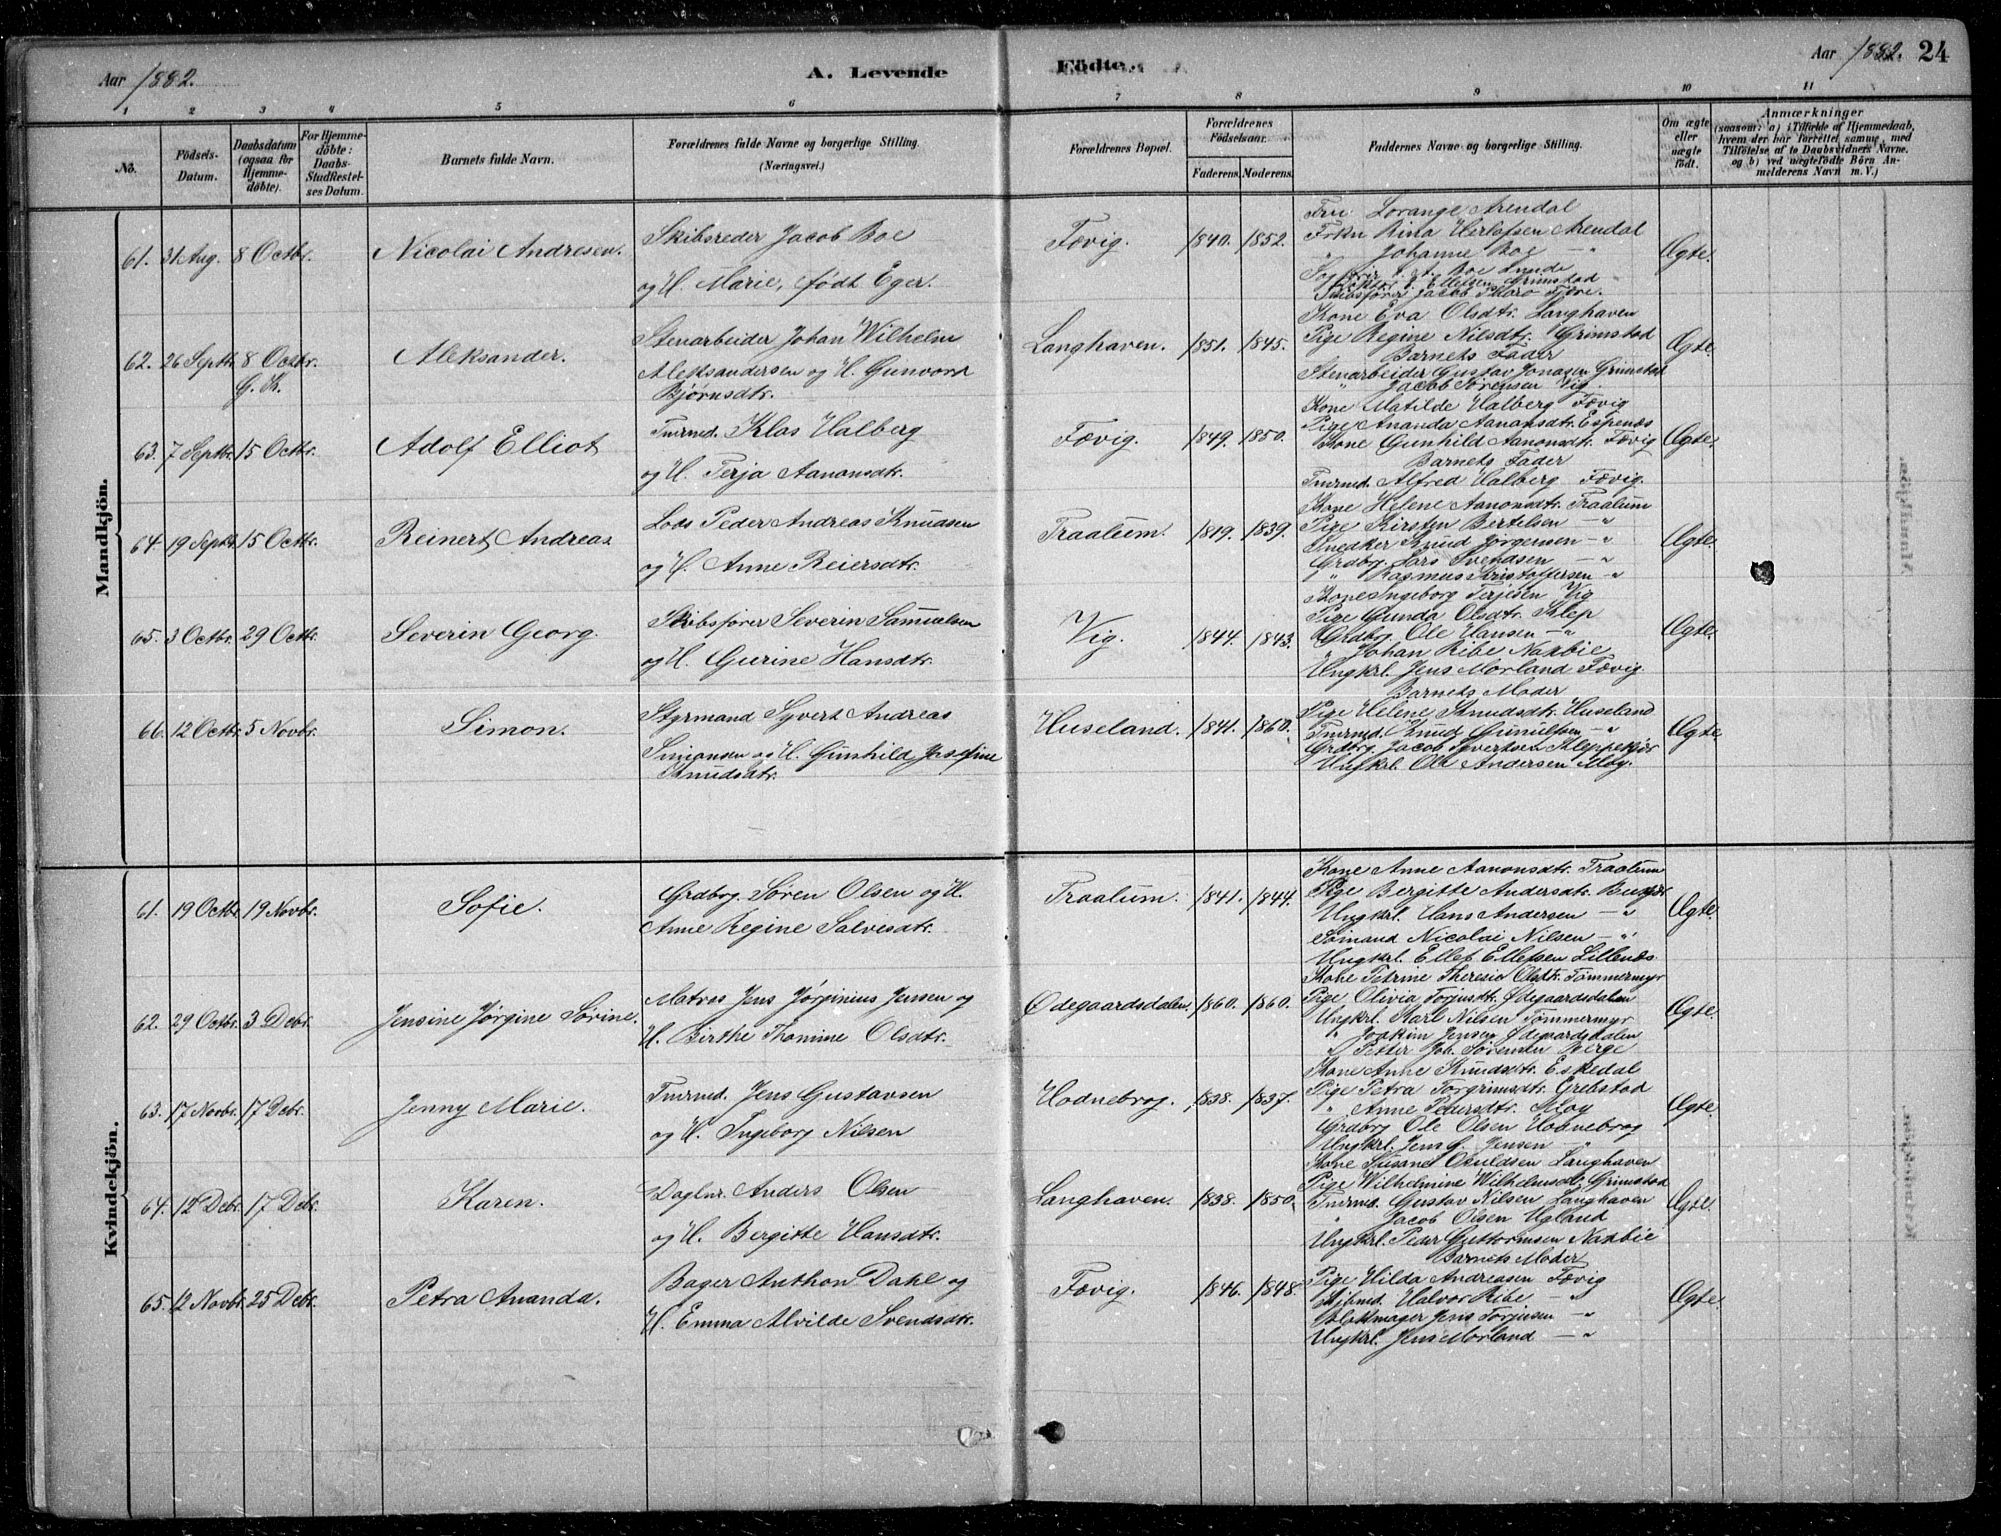 Aar 1882.
A. Levende
Födte.
Aar 1882. 24
1 2 3 4 5 6 7 8 9 10 11
No.
Födsels-Datum.
Daabsdatum (ogsaa for Hjemme-döbte).
For Hjemme-döbte: Daabs-Stadfæstel-ses Datum.
Barnets fulde Navn.
Forældrenes fulde Navne og borgerlige Stilling.
(Næringsvei.)
Forældrenes Bopæl.
Forældrenes Födselsaar.
Faderens. Moderens.
Faddernes Navne og borgerlige Stilling.
Om ægte eller uægte födt.
Anmærkninger
(saasom: a) i Tilfælde af Hjemmedaab,
hvem der har forrettet samme, med
Tilföielse af to Daabsvidners Navne,
og b) ved uægtefödte Börn An-
melderens Navn m. V.)
Mandkjön.
61. 31 Aug. 8 Octbr. Nicolai Andresen.
Skibsreder Jacob Boe
og H. Marie, født Eger.
Fævig. 1840. 1852.
Fru Lorange, Arendal
Frkn Rina Herlofsen Arendal
" Johanne Boe — "
Boe Lunde
Ellefsen Grimstad
Skibsfører Jacob Fjære.
Ægte.
62. 26 Septbr. 8 Octbr. G. K. Aleksander.
Stenarbeider Johan Wilhelm
Aleksandersen og H. Gunvord
Bjørnsdtr.
Langhaven. 1851. 1845.
Kone Eva Olsdtr. Langhaven
Pige Regine Nilsdtr. Grimstad
Barnets Fader
Stenarbeider Gustav Jonasen Grimstad
" Jacob Sørensen Vig.
Ægte.
63. 7 Septbr. 15 Octbr. Adolf Elliot
Tmrmd. Klas Halberg
og H. Terja Aanonsdtr.
Fævig. 1849. 1850.
Kone Matilde Halberg Fævig
Pige Ananda Aanonsdtr. Espenæs
Kone Gunhild Aanonsdtr. Fævig
Barnets Fader
Tmrmd. Alfred Halberg Fævig.
Ægte.
64. 19 Septbr. 15 Octbr. Reinert Andreas
Lods Peder Andreas Knudsen
og H. Anne Reiersdtr.
Traalum. 1819. 1839.
Kone Helene Aanonsdtr. Traalum
Pige Kirsten Bertelsen — "
Snedker Knud Jørgensen — "
Grdbrg. Lars Svendsen — "
" Rasmus Kristoffersen — "
Ægte.
65. 3 Octbr. 29 Octbr. Severin Georg.
Skibsfører Severin Samuelsen
og H. Gurine Hansdtr.
Vig. 1844. 1843.
Kone Ingeborg Terjesen Vig
Pige Gunda Olsdtr. Klep
Grdbrg. Ole Hansen — "
" Johan Ribe Naxbie
Ungkrl. Jens Morland Fævig.
Ægte.
66. 12 Octbr. 5 Novbr. Simon.
Styrmand Syvert Andreas
Simonsen og H. Gunhild Josefine
Knudsdtr.
Huseland. 1841. 1860.
Barnets Moder
Pige Helene Knudsdtr. Huseland
Tmrmd. Knud Gunulfsen — "
Grdbrg. Jacob Syvertsen Kleppekjær
Ungkrl. Ole Andersen Moy.
Ægte
Kvindekjön.
61. 19 Octbr. 19 Novbr. Sofie.
Grdbrg. Søren Olsen og H.
Anne Regine Salvesdtr.
Traalum. 1841. 1844.
Kone Anne Aanonsdtr. Traalum
Pige Bergitte Andersdtr.
Ungkrl. Hans Andersen — "
Sømand Nicolai Nilsen — "
Ungkrl. Ellef Ellefsen Lillenæs
Ægte.
62. 29 Octbr. 3 Debr. Jensine Jørgine Sørine.
Matros Jens Jørginius Jensen og
H. Birthe Thomine Olsdtr.
Ødegaardsdalen. 1860. 1860.
Kone Petrine Theresie Olsdtr. Tømmermyr
Pige Olivia Torjusdtr. Ødegaardsdalen
Ungkrl. Karl Nilsen Tømmermyr
" Joakim Jensen Ødegaardsdalen
" Petter Joh. Sørensen Berge
Ægte.
63. 17 Novbr. 17 Debr. Jenny Marie.
Tmrmd. Jens Gustavsen
og H. Ingeborg Nilsen
Hodnebrog. 1838. 1837.
Kone Anne Knudsdtr. Eskedal
Pige Petra Torgrimsdtr. Grebstad
" Anne Pedersdtr. Moy
Grdbrg Ole Olsen Hodnebrog
Ungkrl. Jens G. Jensen — "
Ægte.
64. 12 Debr. 17 Debr. Karen.
Daglnr. Anders Olsen
og H. Bergitte Hansdtr.
Langhaven. 1838. 1850.
Kone Susane Osuldsen Langhaven
Pige Wilhelmine Wilhelmsdtr. Grimstad
Tmrmd. Gustav Nilsen Langhaven
" Jacob Olsen Ugland
Ungkrl. Peder Guttormsen Naxbie
Ægte.
65. 12 Novbr. 25 Debr. Petra Ananda.
Bager Anthon Dahl og
H. Emma Alvilde Svendsdtr.
Fævig. 1846. 1848.
Barnets Moder
Pige Hilda Andreasen Fævig
Halvor Ribe — "
Blokmager Jens Torjusen — "
Ungkrl. Jens Morland — "
Ægte.